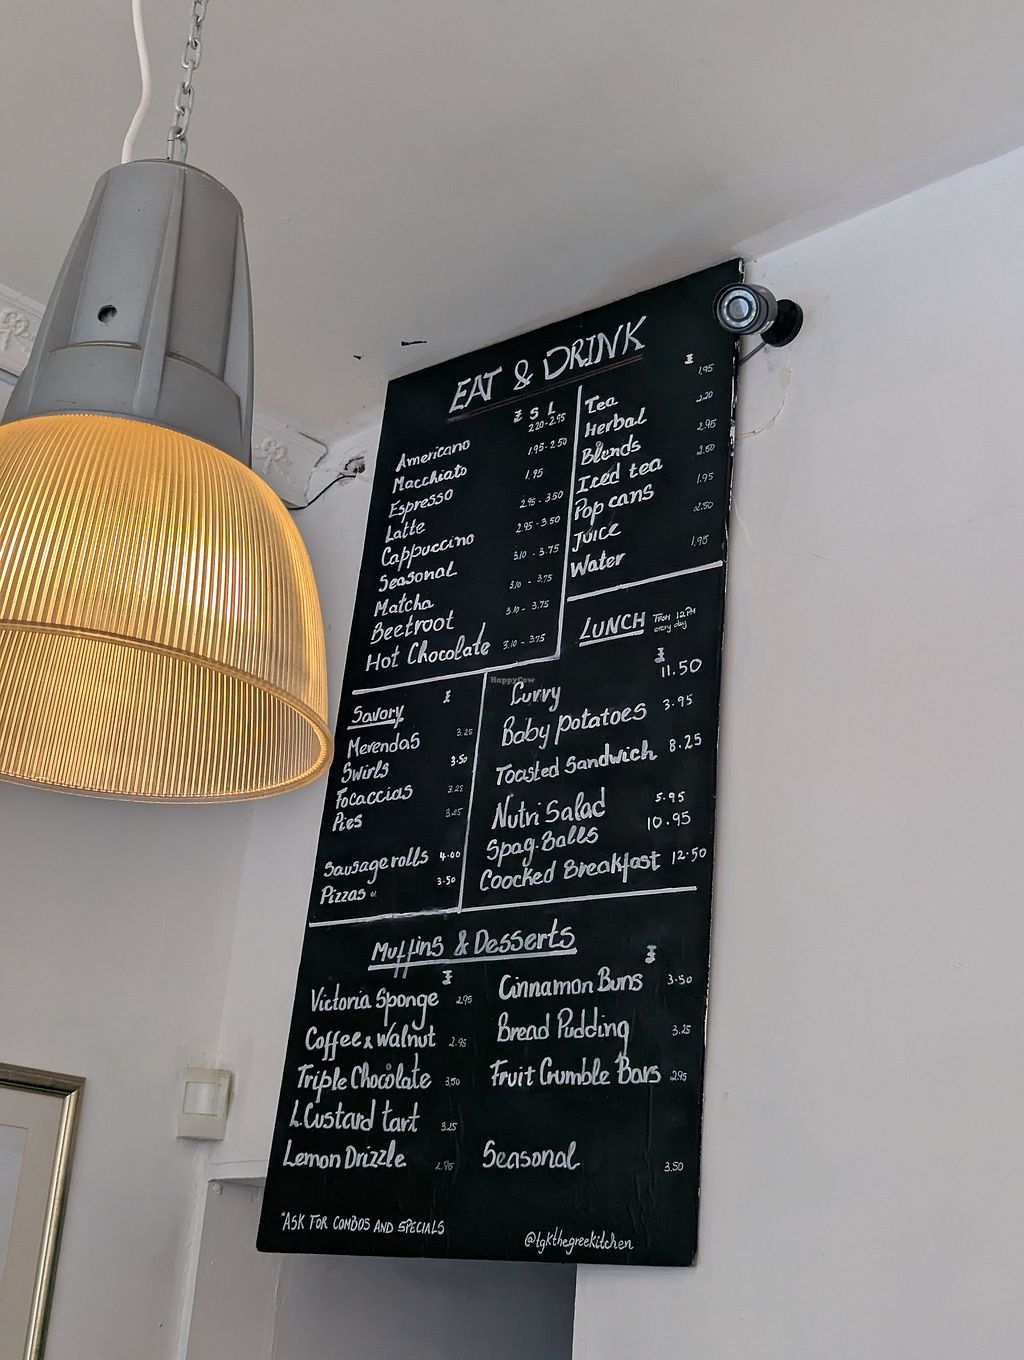 EAT & DRINK
£ S L
Americano 2.20-2.95
Macchiato 1.95-2.50
Espresso 1.95
Latte 2.95-3.50
Cappuccino 2.95-3.50
Seasonal 3.10-3.75
Matcha 3.10-3.75
Beetroot 3.10-3.75
Hot Chocolate 3.10-3.75
£
Tea 1.95
Herbal 2.20
Blends 2.95
Iced tea 2.50
Pop cans 1.95
Juice 2.50
Water 1.95
LUNCH From 12PM
every day
£
Curry 11.50
Baby potatoes 3.95
Toasted Sandwich 8.25
Nutri Salad 5.95
Spag. Balls 10.95
Coocked Breakfast 12.50
Savory £
Merendas 3.25
Swirls 3.50
Focaccias 3.25
Pies 3.25
Sausage rolls 4.00
Pizzas 3.50
Muffins & Desserts
£
Victoria Sponge 2.95
Coffee & Walnut 2.95
Triple Chocolate 3.50
L.Custard tart 3.25
Lemon Drizzle 2.95
£
Cinnamon Buns 3.50
Bread Pudding 3.25
Fruit Crumble Bars 2.95
Seasonal 3.50
*ASK FOR COMBOS AND SPECIALS
@tgkthegreekitchen
HappyCow